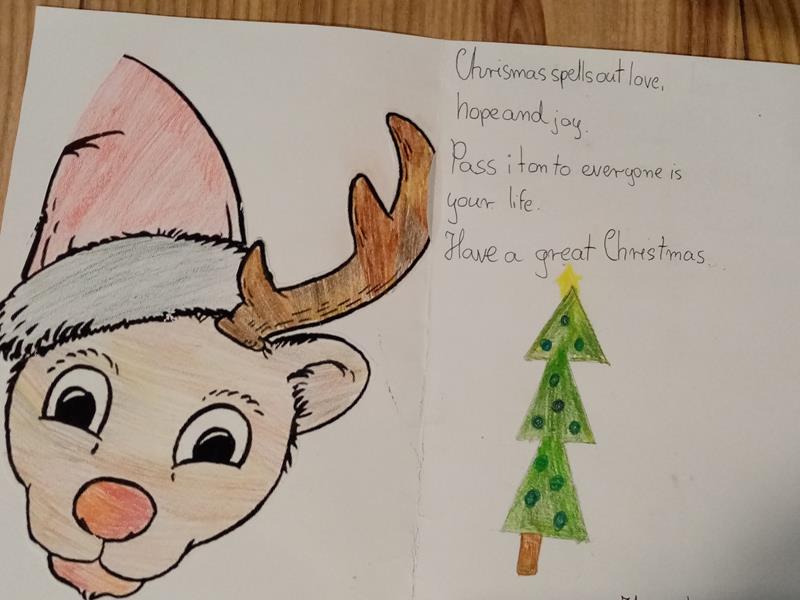 Chrismas spells out love,
hope and joy.
Pass it on to everyone is
your life.
Have a great Christmas...